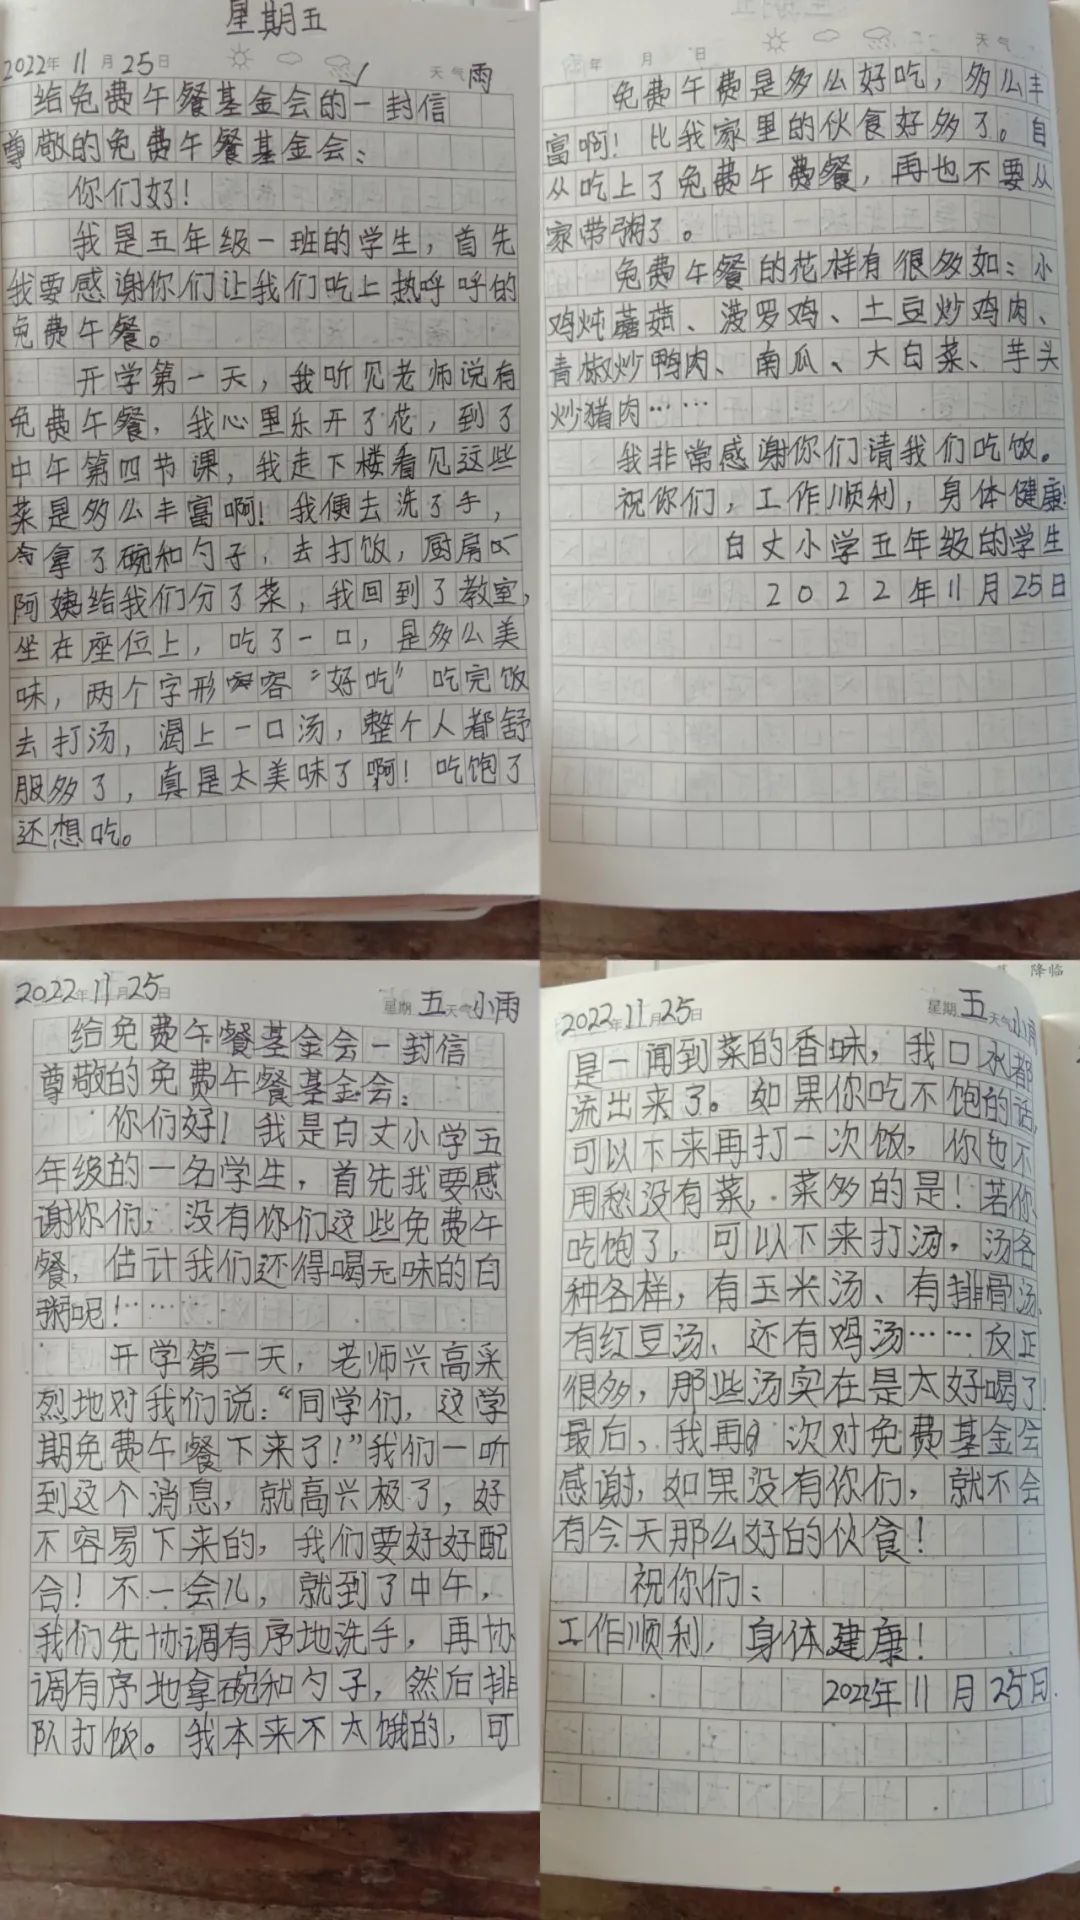 星期五
2022年 11月 25日 天气 雨
给免费午餐基金会的一封信
尊敬的免费午餐基金会：
你们好！
我是五年级一班的学生，首先
我要感谢你们让我们吃上热呼呼的
免费午餐。
开学第一天，我听见老师说有
免费午餐，我心里乐开了花，到了
中午第四节课，我走下楼看见这些
菜是多么丰富啊！我便去洗了手，
拿了碗和勺子，去打饭，厨房
阿姨给我们分了菜，我回到了教室，
坐在座位上，吃了一口，是多么美
味，两个字形容“好吃”吃完饭
去打汤，渴上一口汤，整个人都舒
服多了，真是太美味了啊！吃饱了
还想吃。
年 月 日 天气
免费午费是多么好吃，多么丰
富啊！比我家里的伙食好多了。自
从吃上了免费午费餐，再也不要从
家带粥了。
免费午餐的花样有很多如：小
鸡炖蘑菇、菠罗鸡、土豆炒鸡肉、
青椒炒鸭肉、南瓜、大白菜、芋头
炒猪肉……
我非常感谢你们请我们吃饭。
祝你们，工作顺利，身体健康！
白丈小学五年级的学生
2022年11月25日
2022年11月25日 星期五 天气小雨
给免费午餐基金会一封信
尊敬的免费午餐基金会：
你们好！我是白丈小学五
年级的一名学生，首先我要感
谢你们，没有你们这些免费午
餐，估计我们还得喝无味的白
粥呢！……
开学第一天，老师兴高采
烈地对我们说：“同学们，这学
期免费午餐下来了！”我们一听
到这个消息，就高兴极了，好
不容易下来的，我们要好好配
合！不一会儿，就到了中午，
我们先协调有序地洗手，再协
调有序地拿碗和勺子，然后排
队打饭。我本来不太饿的，可
降临
2022年11月25日 星期五 天气小雨
是一闻到菜的香味，我口水都
流出来了。如果你吃不饱的话，
可以下来再打一次饭，你也不
用愁没有菜，菜多的是！若你
吃饱了，可以下来打汤，汤各
种各样，有玉米汤、有排骨汤、
有红豆汤、还有鸡汤……反正
很多，那些汤实在是太好喝了！
最后，我再次对免费基金会
感谢，如果没有你们，就不会
有今天那么好的伙食！
祝你们：
工作顺利，身体建康！
2022年11月25日.